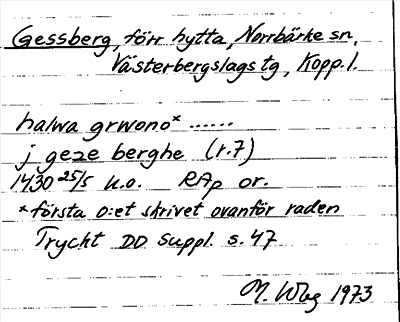 Gessberg, förr hytta, Norrbärke sn,
Västerbergslags tg, Kopp. l.
halwa grwono* ......
j geze berghe (r.7)
1430 25/5 u.o. RAp or.
*första o:et skrivet ovanför raden
Tryckt DD suppl. s. 47
M. Wbg 1973